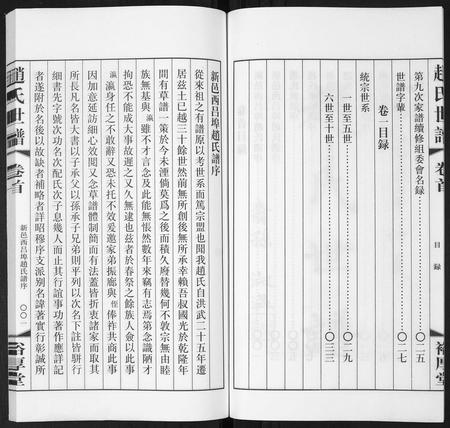 趙氏世譜
卷首
目錄
裕厚堂
第九次家譜續修組委會名錄……〇二五
世譜字輩……〇二七
卷一目錄
統宗世系
一世至五世……〇二九
六世至十世……〇三三
新邑西呂埠趙氏譜序
從來祖之有譜原以考世系而篤宗盟也聞我趙氏自洪武二十五年遷
居茲土已越三十餘世然前無所創後無所承幸賴吾叔國光於乾隆年
間有草譜一策於今未湮倘莫爲之後而積久廢替幾何不敦宗無由睦
族無基與瀛雖不才言念及此能無悵然數年來竊有志焉第念識陋才
拘恐不能成大事故遲之又久無逮也茲者於春祭之餘族人僉以此事
瀛身任之不敢辭又恐未托不效爰邀家弟振廊與侄俸祥共商此事
因加意延訪細心效閱又念草譜體制簡而有法蓋皆折衷諸家而取其
所長凡名皆大書以子承父以孫承子兄弟則平列以次名下註皆駢行
細書先字號次功名次配氏次子息幾人而止其行誼事功著作應詳記
者遂附於名後以故缺者補略者詳昭穆序支派別名諱著實行彰誠所
趙氏世譜
卷首
新邑西呂埠趙氏譜序
〇〇一
裕厚堂